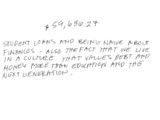 $59,636.27
STUDENT LOANS AND BEING NAIVE ABOUT
FINANCES - ALSO THE FACT THAT WE LIVE
IN A CULTURE THAT VALUES DEBT AND
MONEY MORE THAN EDUCATION AND THE
NEXT GENERATION.